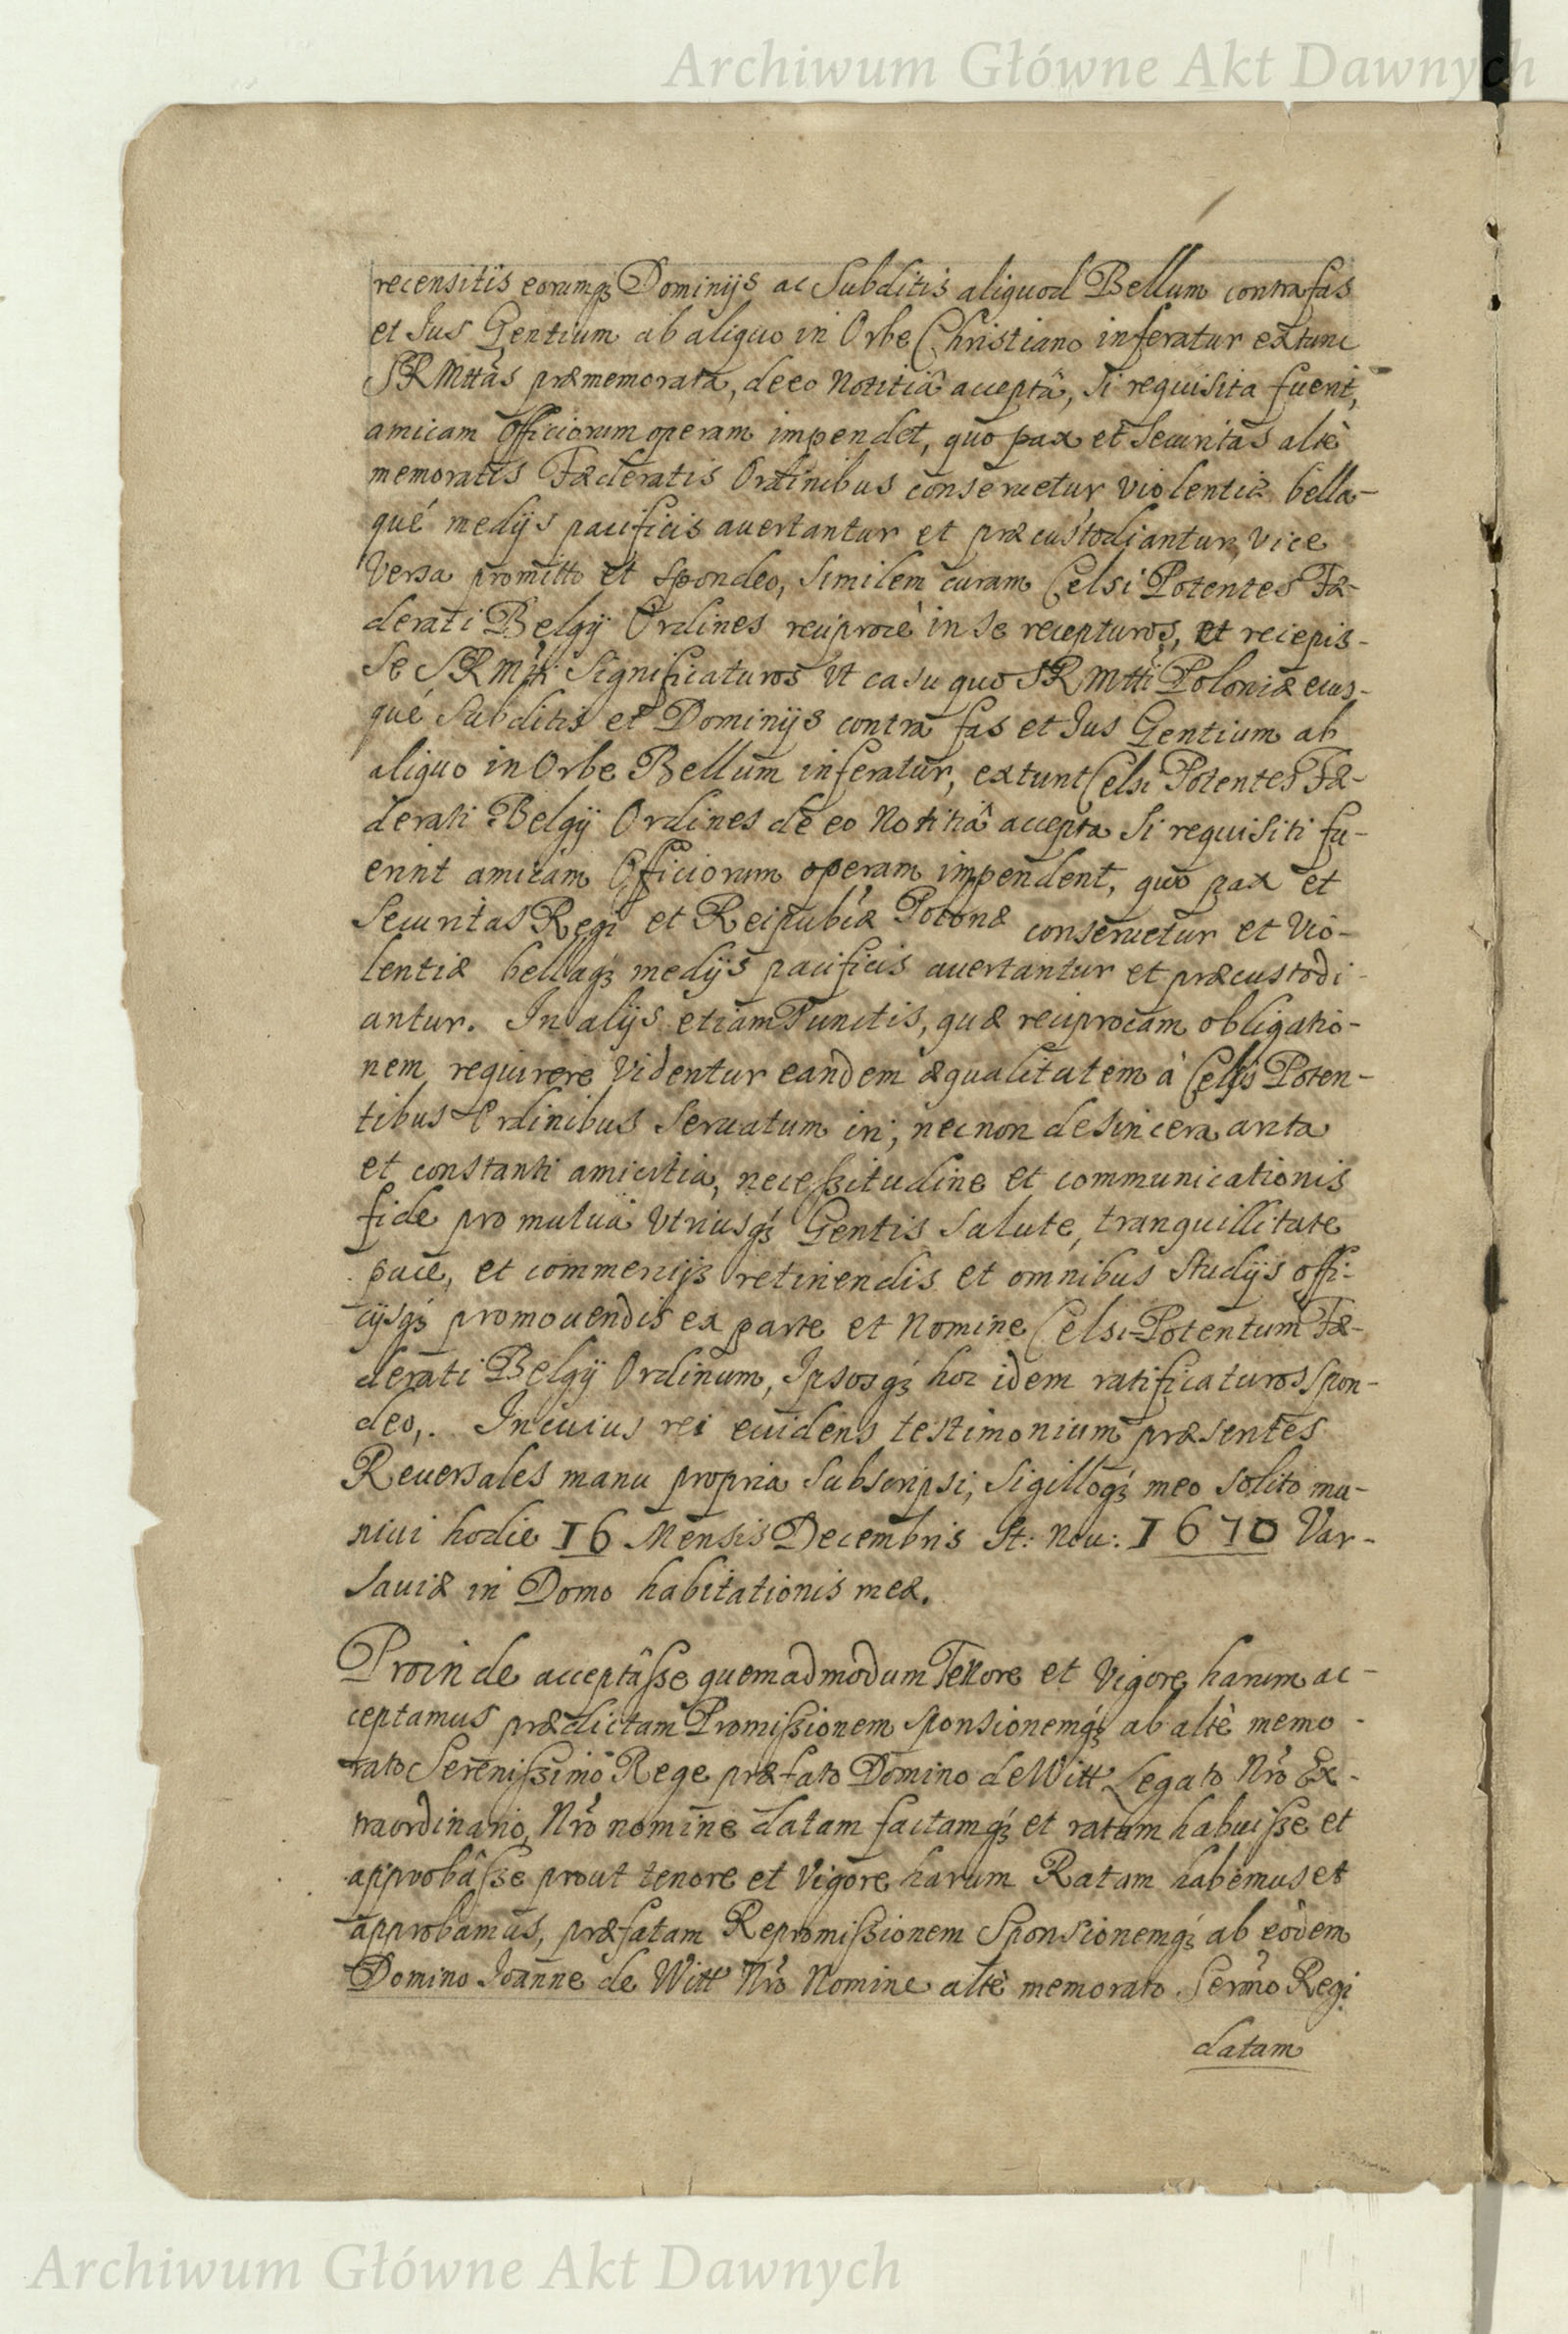 Archiwum Główne Akt Dawnych
recensitis eorumqꝫ Dominijs ac Subditis aliquod Bellum contra fas
et Jus Gentium ab aliquo in Orbe Christiano inferatur extunc
SRMttas præmemorata, de eo Notitiâ acceptâ, si requisita fuerit,
amicam Officiorum operam impendet, quo pax et Securitas altè
memoratis Fæderatis Ordinibus conseruetur violentiæ bella-
qué medijs pacificis auertantur et præcustodiantur, Vice
Versa promitto et spondeo, Similem curam Celsi Potentes Fæ-
derati Belgÿ Ordines reciprocè in se recepturos, et recepis-
se SRMtti Significaturos Vt casu quo SRMtti Poloniæ eius-
qué Subditis et Dominijs contra fas et Jus Gentium ab
aliquo in Orbe Bellum inferatur, extunc Celsi Potentes Fæ-
derati Belgÿ Ordines de eo Notitiâ accepta Si requisiti fu-
erint amicam Officiorum operam impendent, quo pax et
Securitas Regi et Reipublicæ Polonæ conseruetur et Vio-
lentiæ bellaqꝫ medijs pacificis auertantur et præcustodi-
antur. In alijs etiam Punctis, quæ reciprocam obligatio-
nem requirere Videntur eandem æqualitatem à Celsis Poten-
tibus Ordinibus Seruatum iri, necnon de sincera arcta
et constanti amicitia, necessitudine et communicationis
fide pro mutuâ Vtriusqꝫ Gentis Salute, tranquillitate
pace, et commercijs retinendis et omnibus Studijs offi-
cijsqꝫ promouendis ex parte et Nomine Celsi-Potentum Fæ-
derati Belgÿ Ordinum, Ipsosqꝫ hoc idem ratificaturos Spon-
deo,. In cuius rei euidens testimonium præsentes
Reuersales manu propria Subscripsi, Sigilloqꝫ meo solito mu-
niui hodie 16 Mensis Decembris St: Nou: 1670 Var-
sauiæ in Domo habitationis meæ.
Proinde acceptâsse quemadmodum Tenore et Vigore harum ac-
ceptamus prædictam Promissionem Sponsionemqꝫ ab altè memo-
rato Serenissimo Rege præfato Domino de Witt Legato Nro Ex-
traordinario, Nro nomine datam factamqꝫ et ratam habuisse et
approbâsse prout tenore et Vigore harum Ratam habemus et
approbamus, præfatam Repromissionem Sponsionemqꝫ ab eôdem
Domino Joanne de Witt Nro Nomine altè memorato Sermo Regi
datam
Archiwum Główne Akt Dawnych